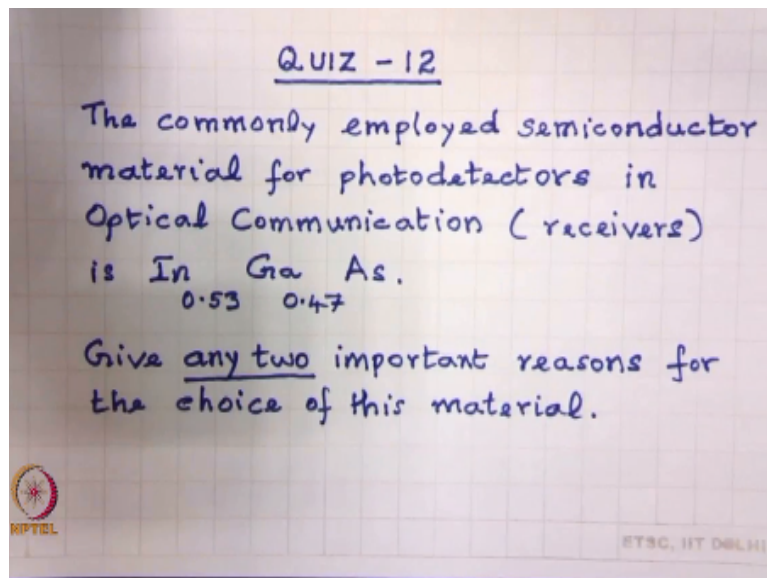 QUIZ - 12
The commonly employed semiconductor
material for photodetectors in
Optical Communication (receivers)
is In Ga As.
0.53 0.47
Give any two important reasons for
the choice of this material.
NPTEL
ETSC, IIT DELHI